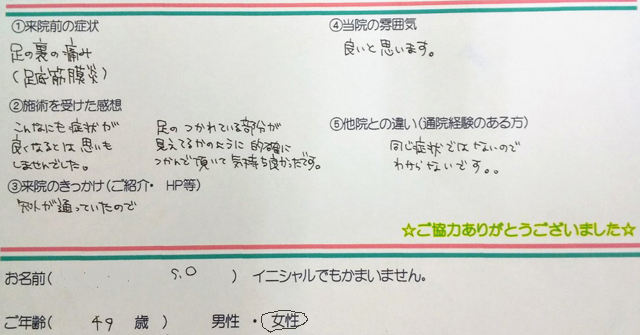 ①来院前の症状
足の裏の痛み
(足底筋膜炎)
②施術を受けた感想
こんなにも症状が
良くなるとは思いも
しませんでした。
足のつかれている部分が
見えてるかのように的確に
つかんで頂いて気持ち良かったです。
③来院のきっかけ(ご紹介・ HP等)
知人が通っていたので
④当院の雰囲気
良いと思います。
⑤他院との違い(通院経験のある方)
同じ症状ではないので
わからないです。。
☆ご協力ありがとうございました☆
お名前( S.O ) イニシャルでもかまいません。
ご年齢( 49 歳 ) 男性 ・ 女性